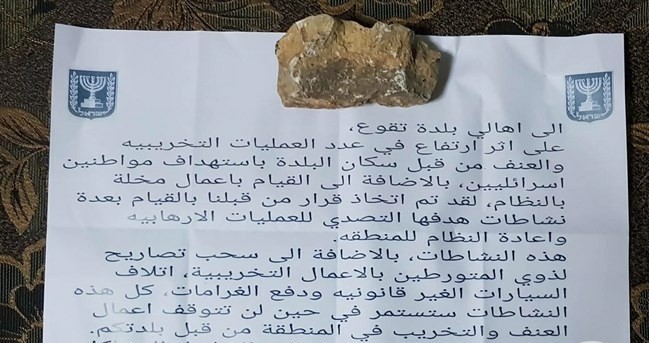 الى اهالي بلدة تقوع،
على اثر ارتفاع في عدد العمليات التخريبيه
والعنف من قبل سكان البلدة باستهداف مواطنين
اسرائليين، بالاضافة الى القيام باعمال مخلة
بالنظام، لقد تم اتخاذ قرار من قبلنا بالقيام بعدة
نشاطات هدفها التصدي للعمليات الارهابيه
واعادة النظام للمنطقه.
هذه النشاطات، بالاضافة الى سحب تصاريح
لذوي المتورطين بالاعمال التخريبية، اتلاف
السيارات الغير قانونيه ودفع الغرامات، كل هذه
النشاطات ستستمر في حين لن تتوقف اعمال
العنف والتخريب في المنطقة من قبل بلدتكم.